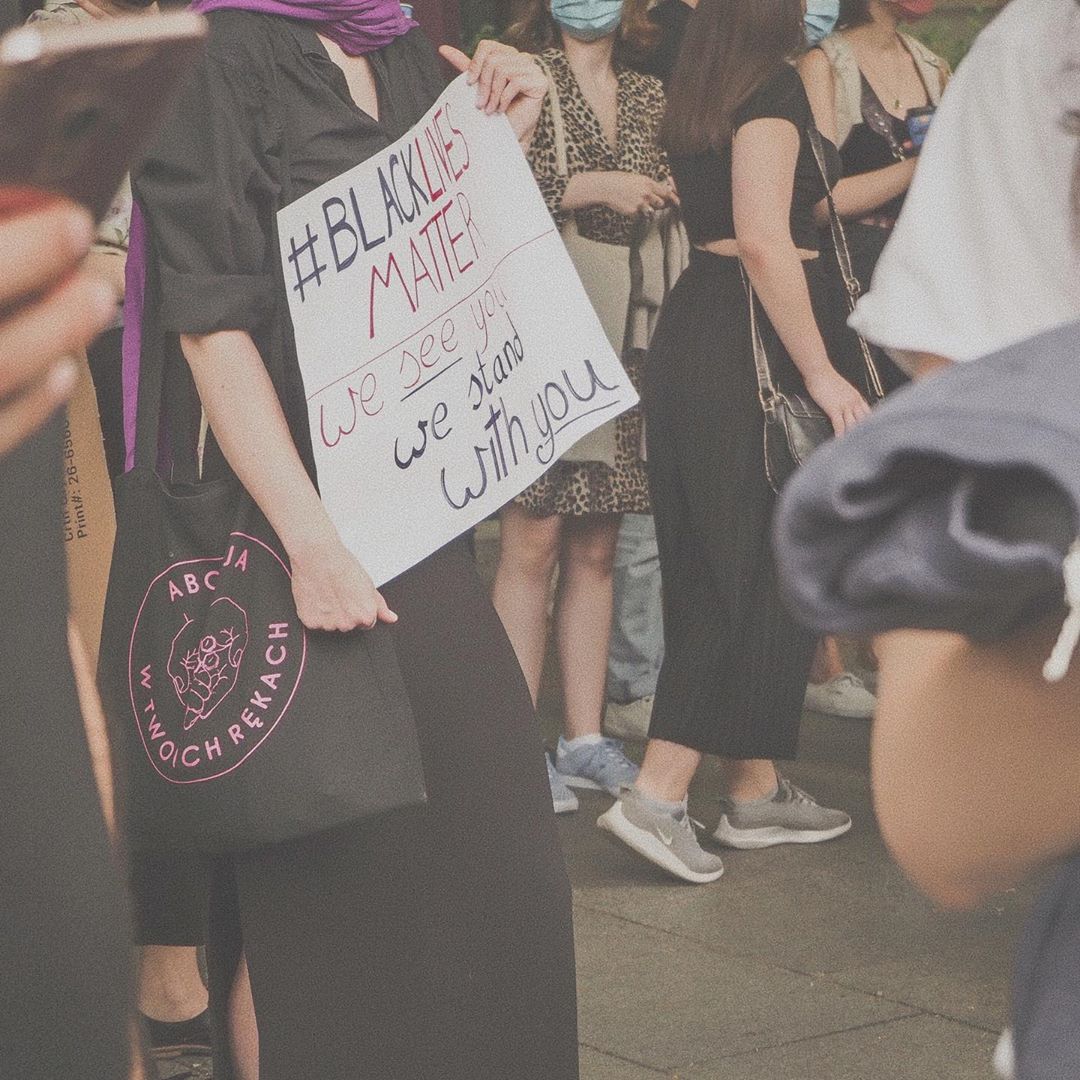 #BLACKLIVES
MATTER
we see you
we stand
with you
ABC JA
W TWOICH RĘKACH
Print#: 26-6506